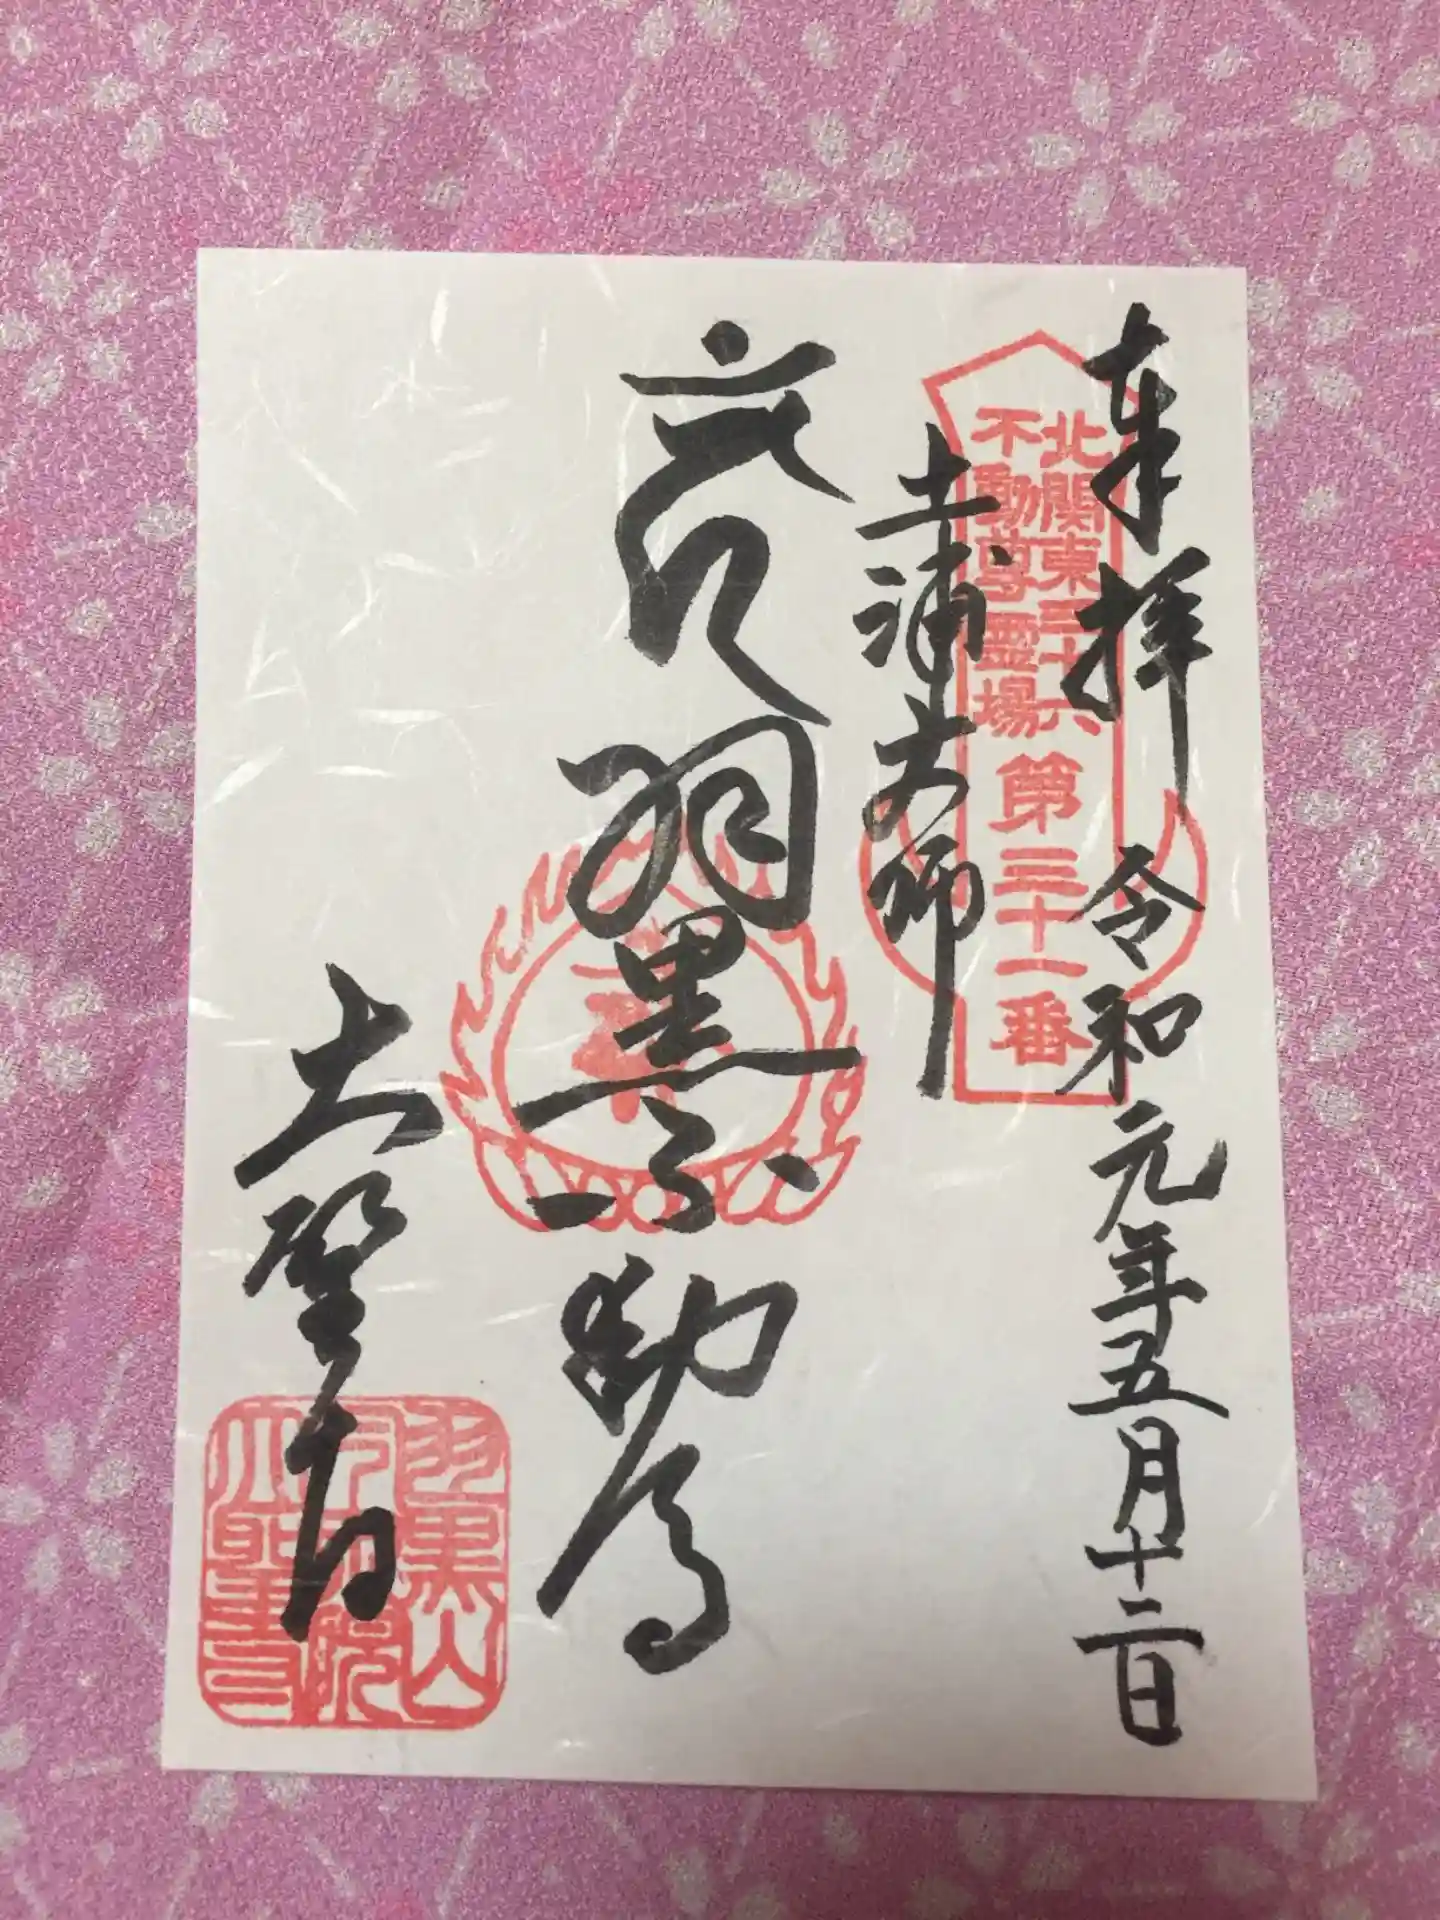 奉拝 令和元年五月十二日
北関東三十六
不動尊霊場
第三十一番
土浦大師
羽黒不動尊
大聖寺
羽黒山
大聖寺